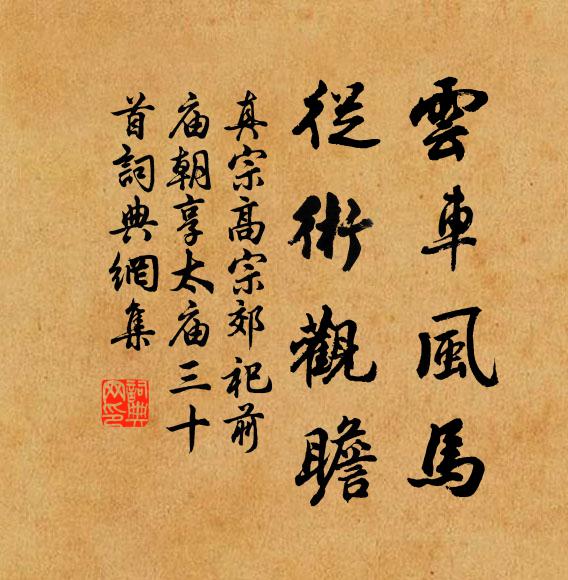 雲車風馬
從術觀瞻
真宗高宗郊祀前
庙朝享太庙三十
首詞典網集
詞典网印